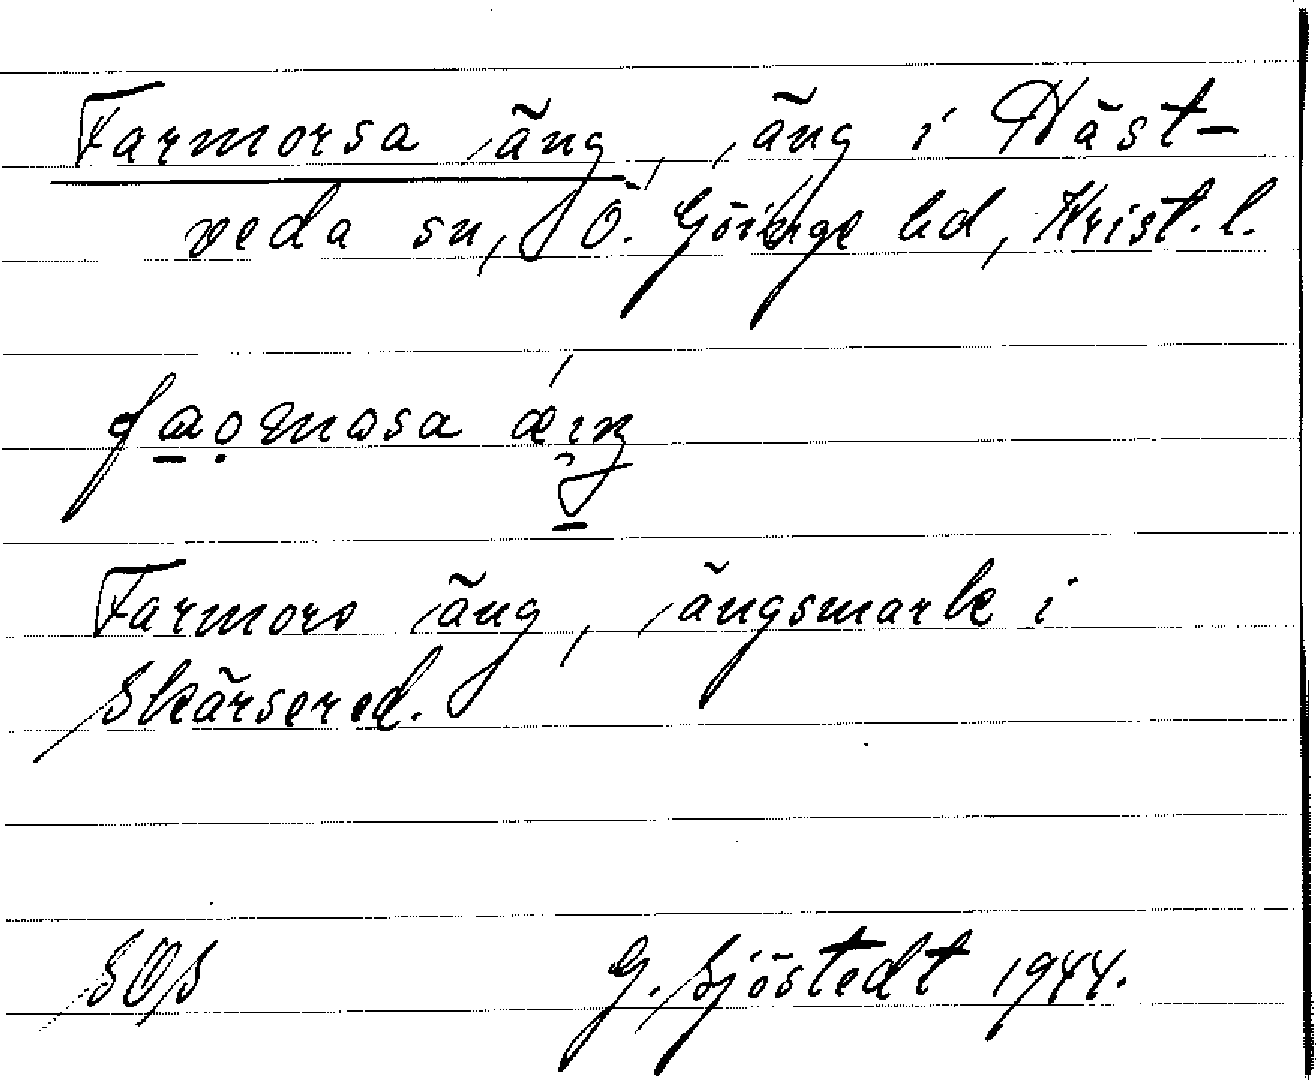 Farmorsa äng, äng i Häst-
veda sn, Ö. Göinge hd, Krist. l.
Farmors äng, ängsmark i
Skärsered.
SOS G. Sjöstedt 1944.